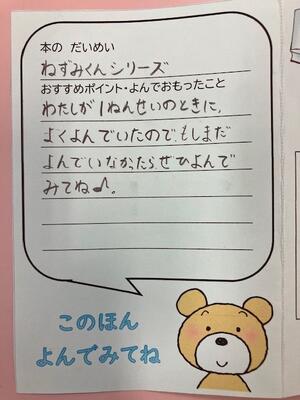 本の だいめい
ねずみくんシリーズ
おすすめポイント・よんでおもったこと
わたしが1ねんせいのときに、
よくよんでいたので、もしまだ
よんでいなかったらぜひよんで
みてね♪。
このほん
よんでみてね